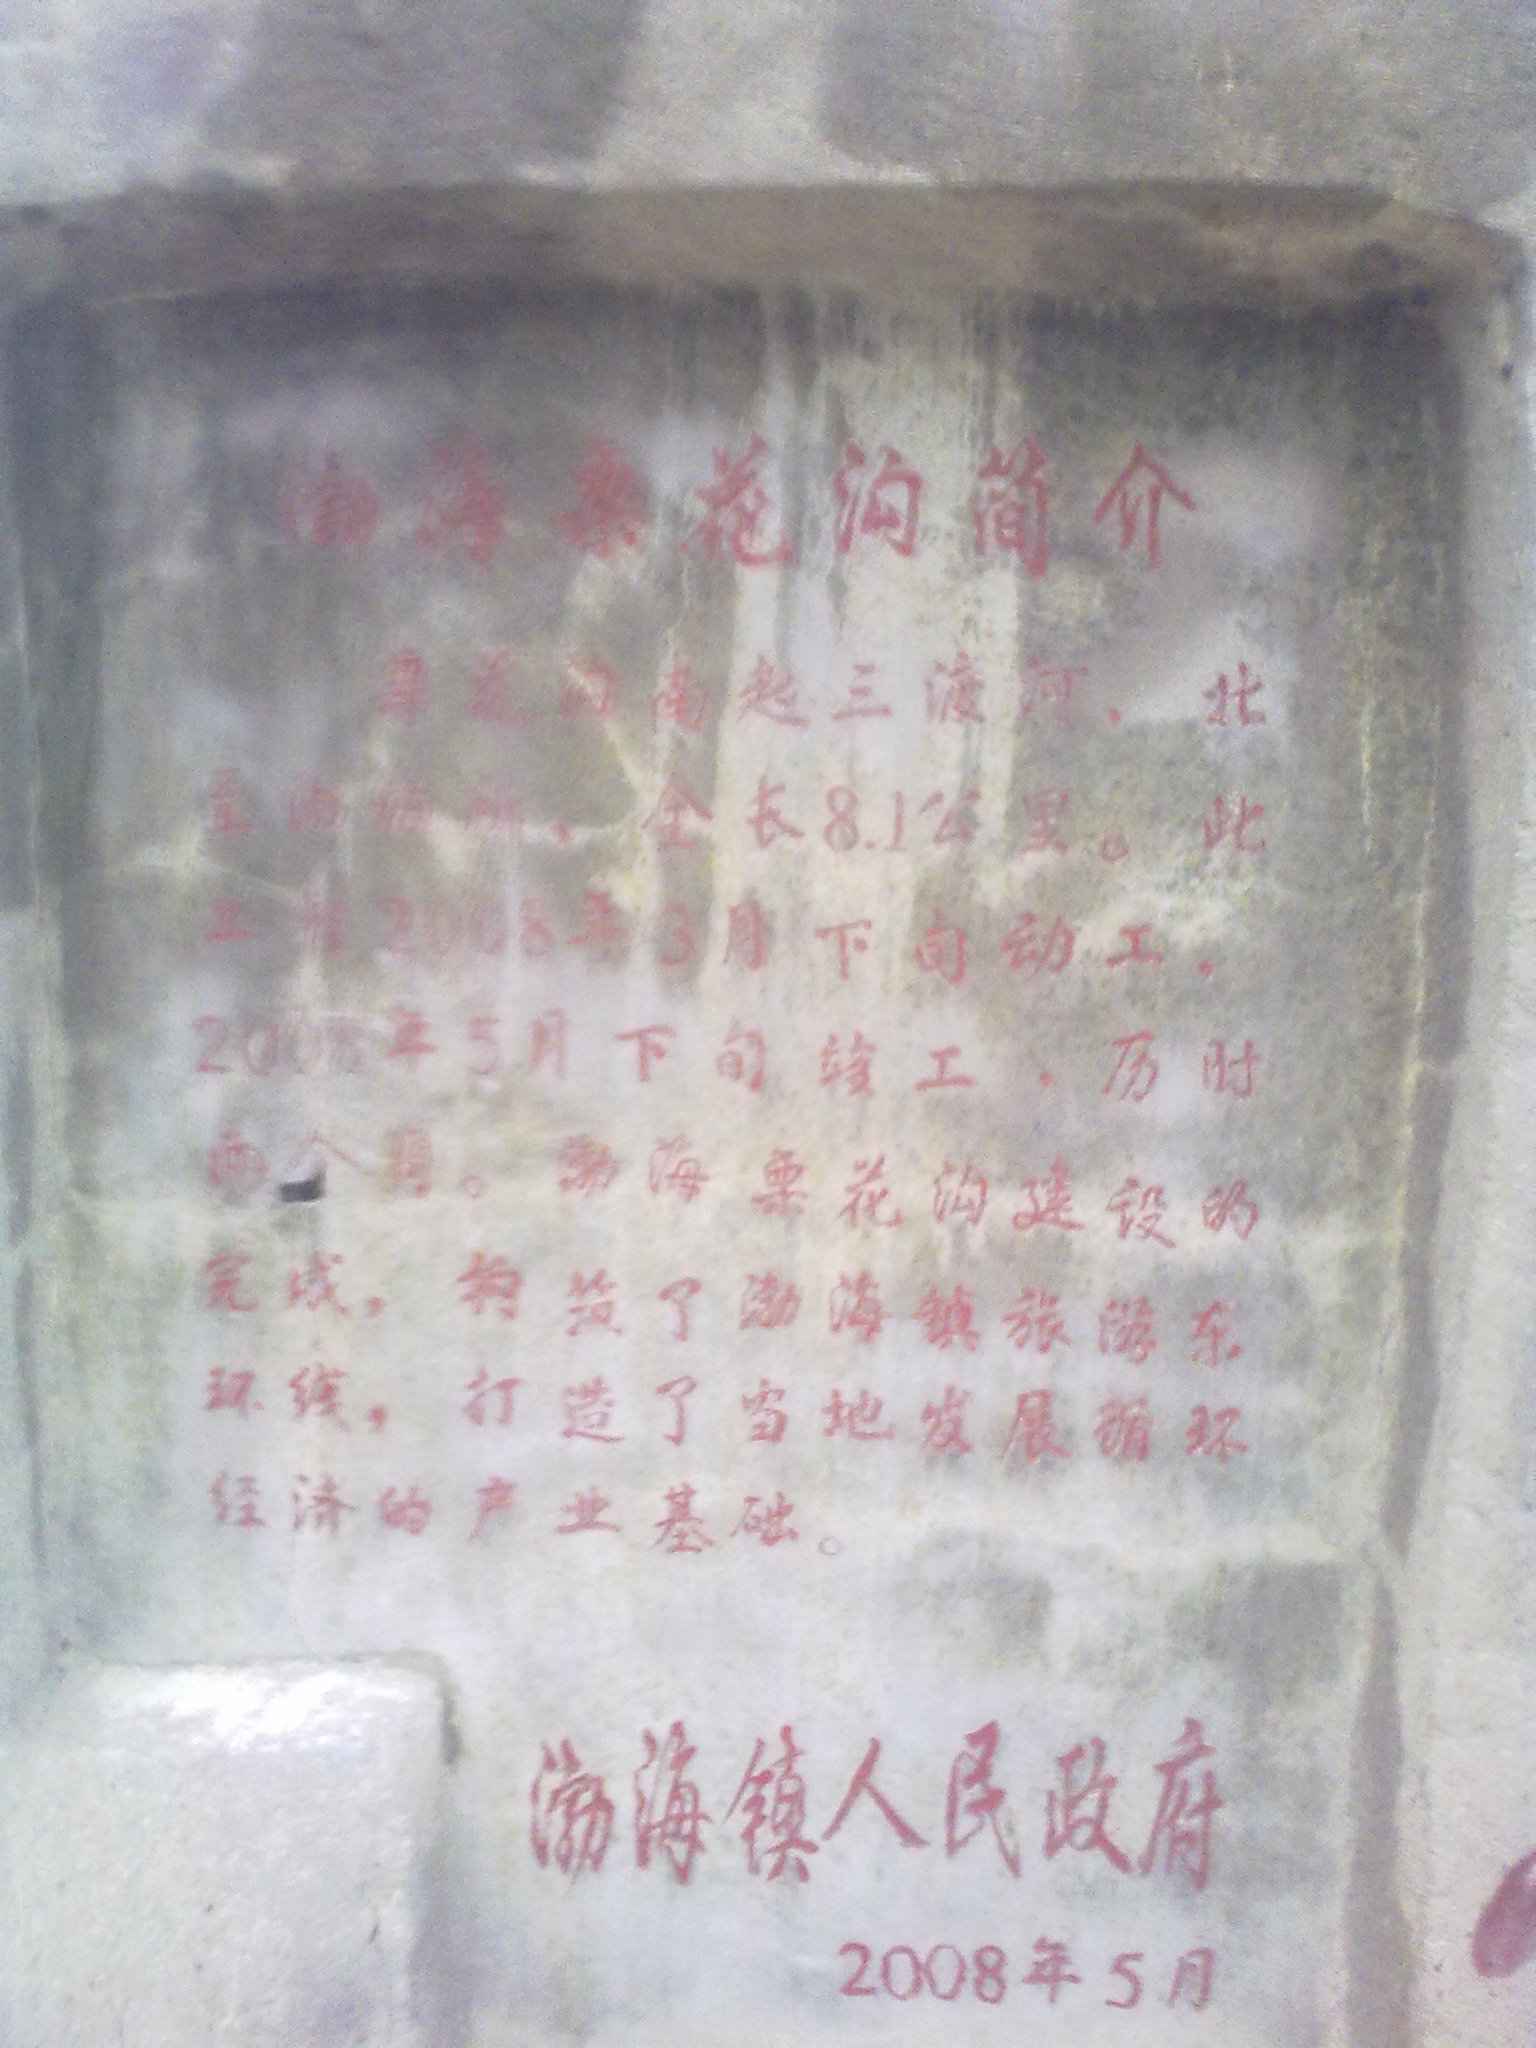 渤海栗花沟简介
栗花沟南起三渡河，北
至 全长8.1公里。此
工程2008年3月下旬动工，
2008年5月下旬竣工，历时
两个月。渤海栗花沟建设的
完成，构筑了渤海镇旅游东
环线，打造了当地发展循环
经济的产业基础。
渤海镇人民政府
2008年5月